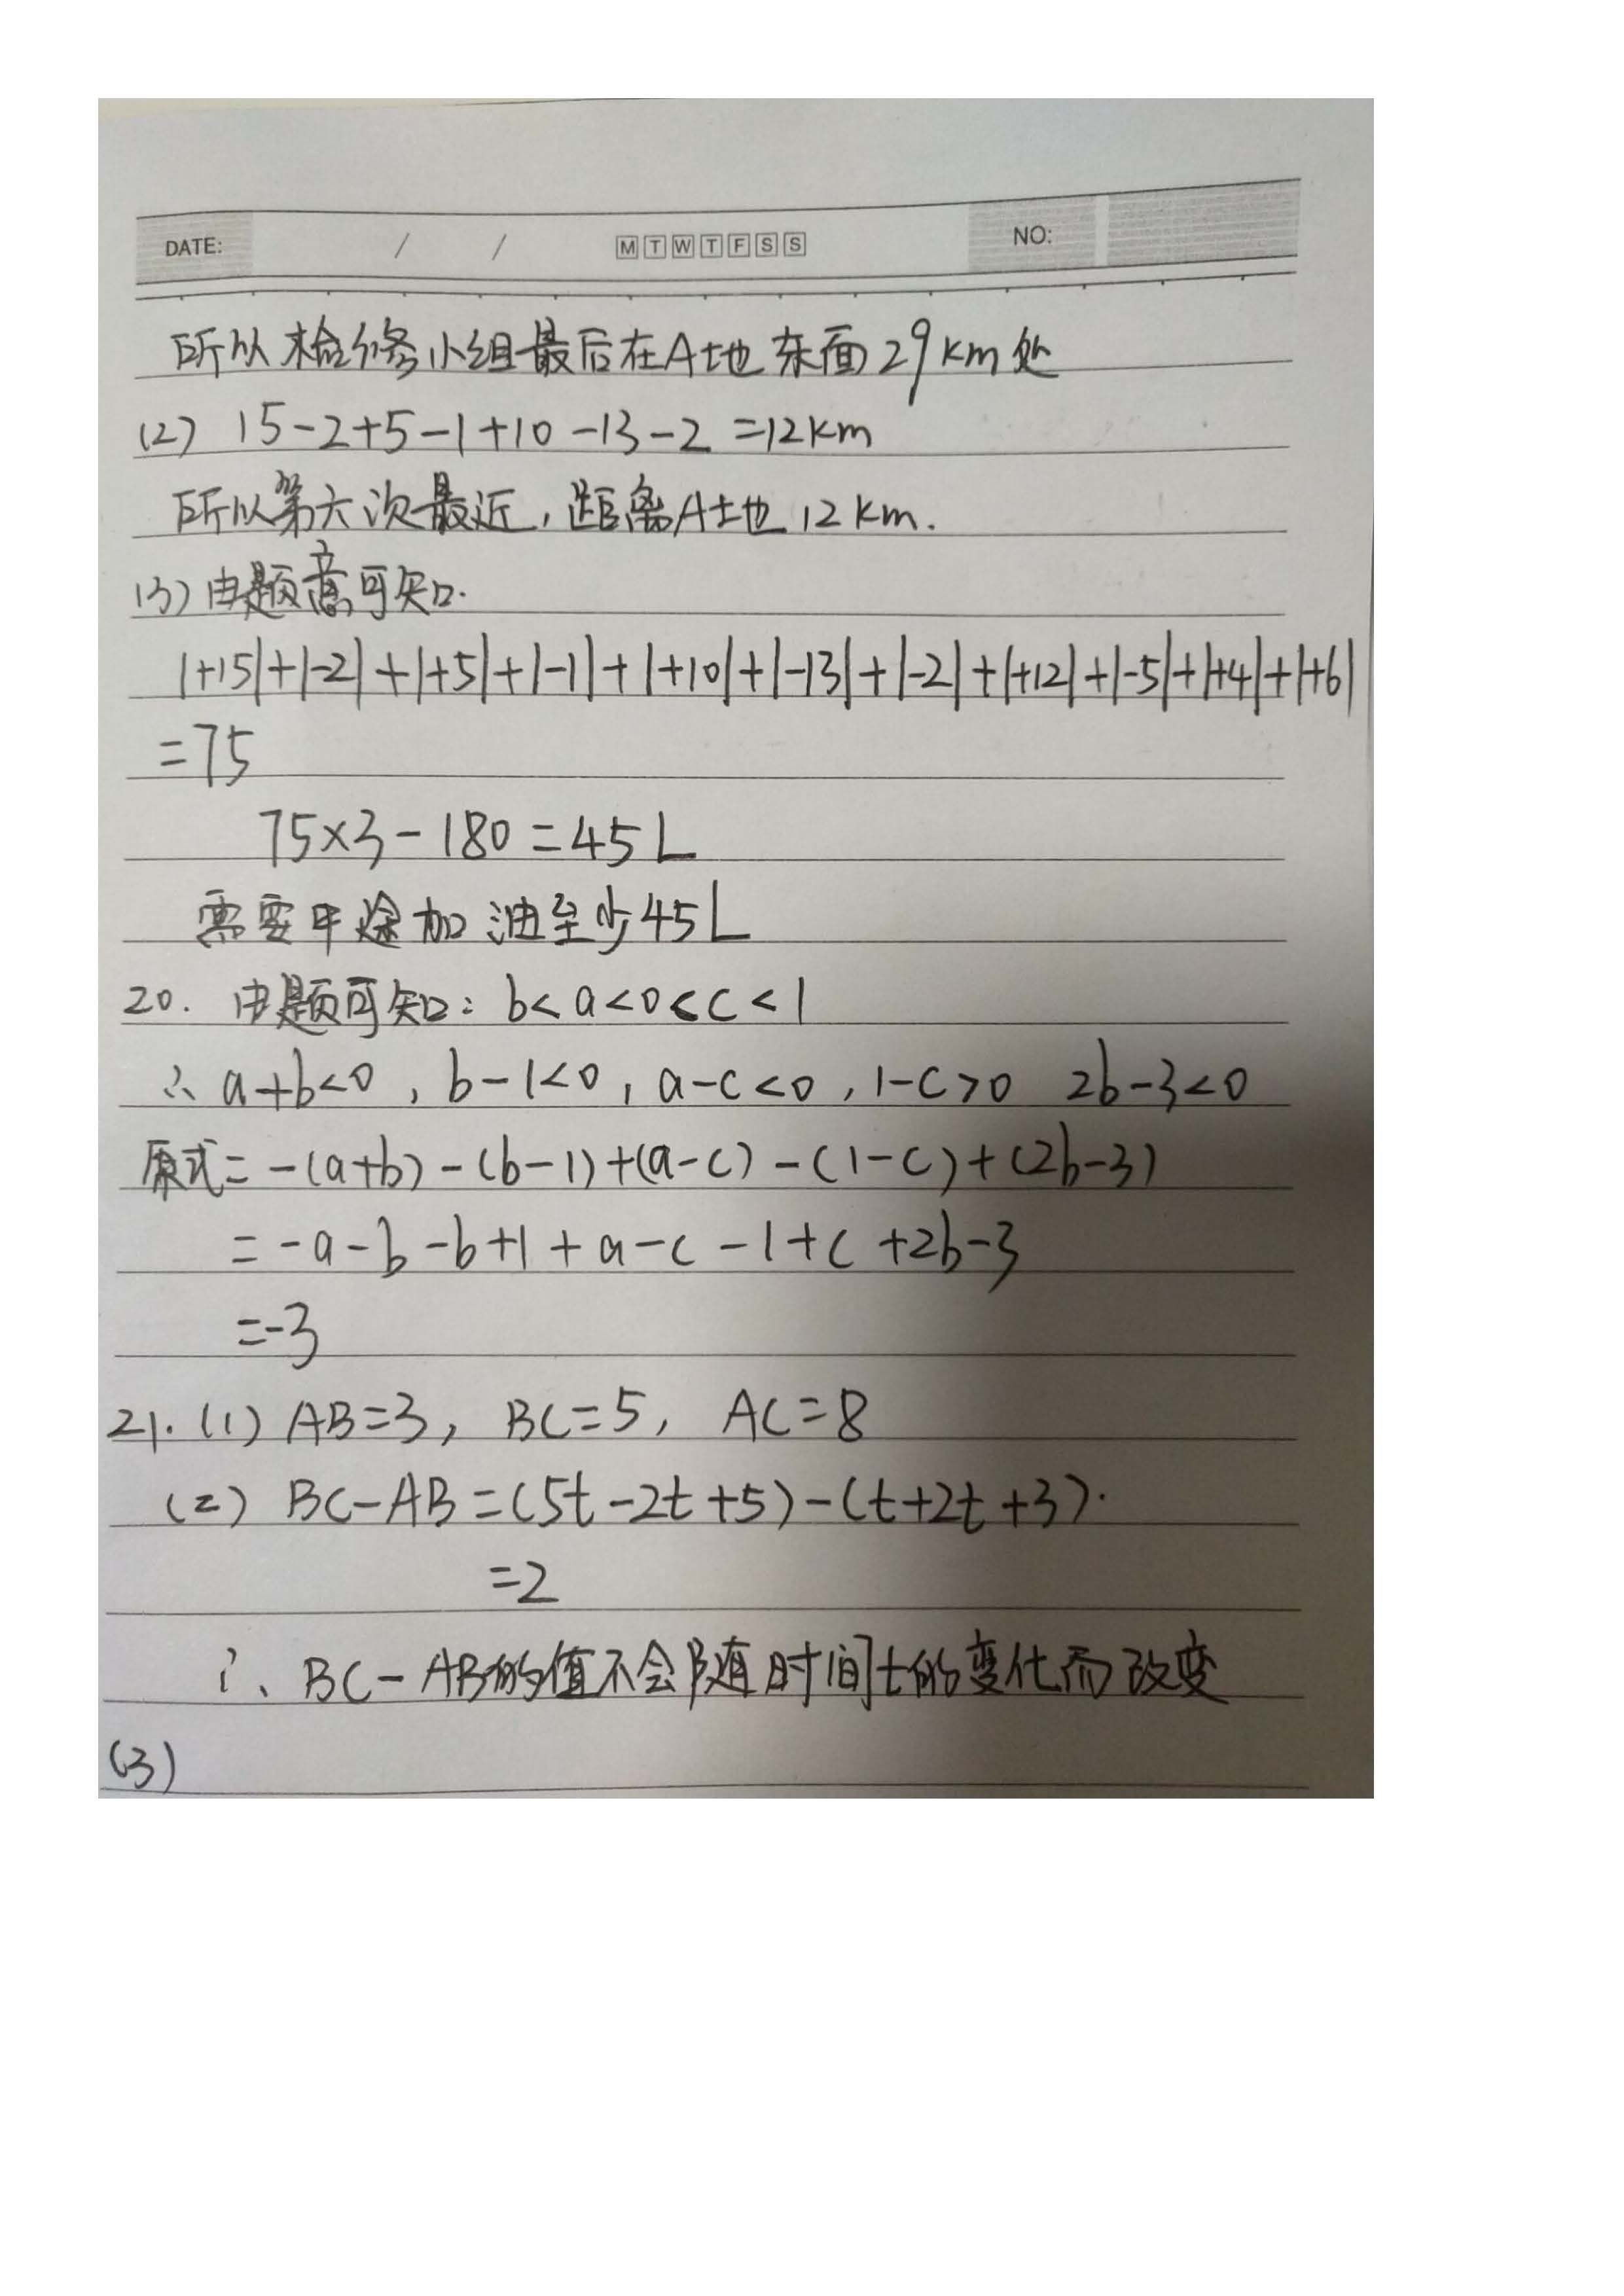 DATE: / / M T W T F S S NO:
所以检修小组最后在A地东面29km处
(2) 15-2+5-1+10-13-2=12km
所以第六次最近,距离A地12km.
(3)由题意可知.
|+15|+|-2|+|+5|+|-1|+|+10|+|-13|+|-2|+|+12|+|-5|+|+4|+|+6|
=75
75×3-180=45L
需要中途加油至少45L
20. 由题可知:b<a<0<c<1
∴a+b<0,b-1<0,a-c<0,1-c>0 2b-3<0
原式=-(a+b)-(b-1)+(a-c)-(1-c)+(2b-3)
=-a-b-b+1+a-c-1+c+2b-3
=-3
21.(1)AB=3, BC=5, AC=8
(2)BC-AB=(5t-2t+5)-(t+2t+3).
=2
∴、BC-AB的值不会随时间t的变化而改变
(3)